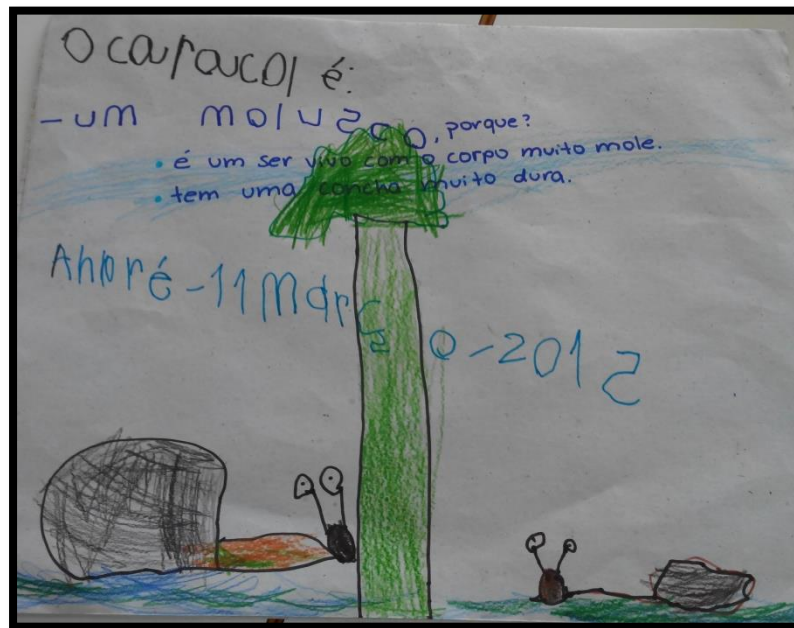 O caracol é:
-um molusco, porque?
• é um ser vivo com o corpo muito mole.
• tem uma concha muito dura.
André-11Março-2012